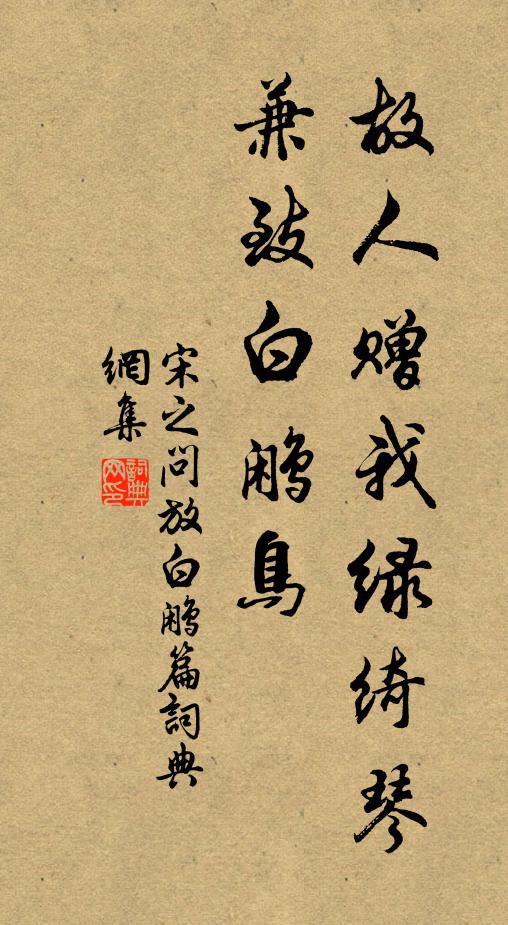 故人赠我绿绮琴
兼致白鹇鸟
宋之问放白鹇篇词典
網集
詞典網印